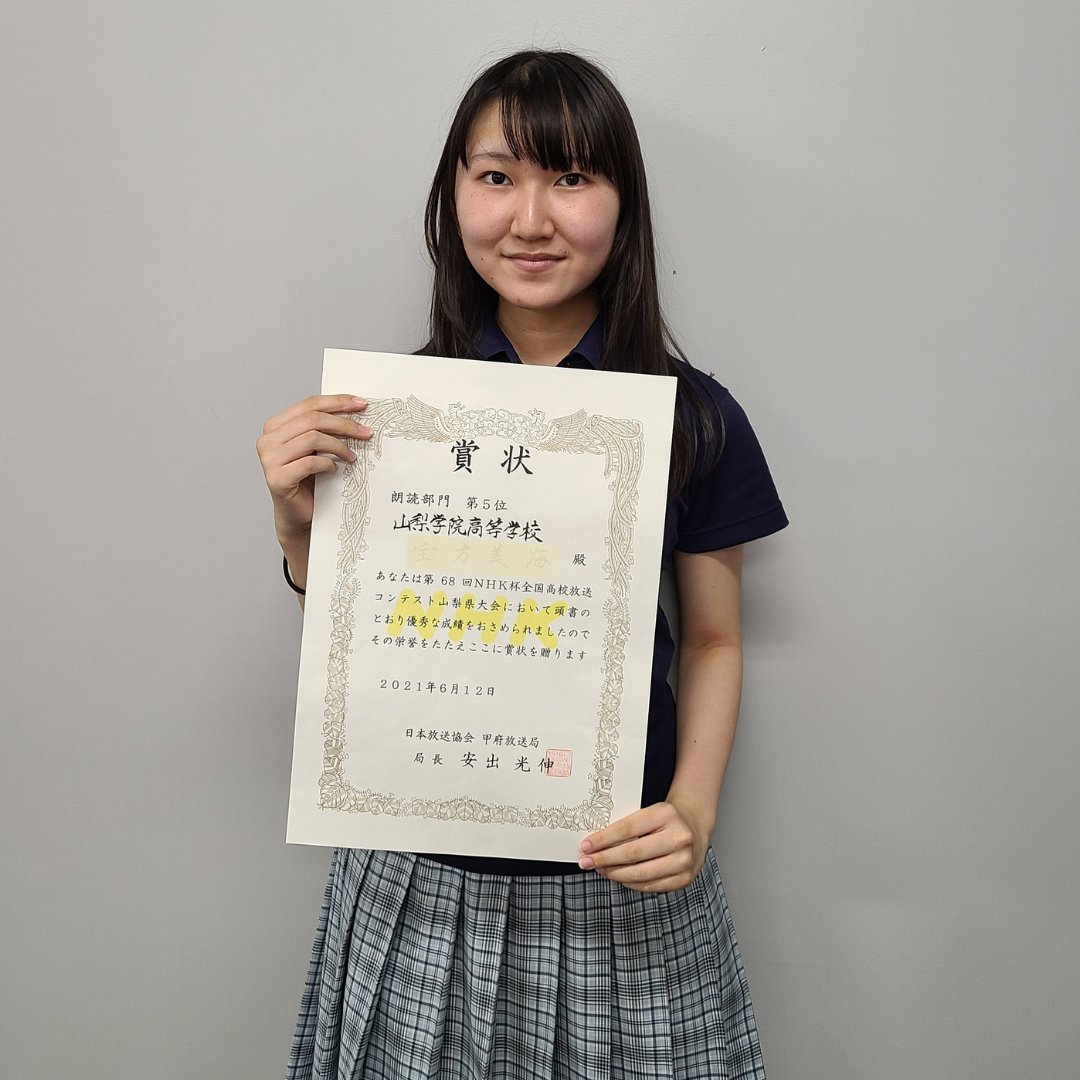 賞状
朗読部門 第5位
山梨学院高等学校
殿
あなたは第 68 回NHK杯全国高校放送
コンテスト山梨県大会において頭書の
とおり優秀な成績をおさめられましたので
その栄誉をたたえここに賞状を贈ります
NHK
2021年6月12日
日本放送協会 甲府放送局
局長 安出光伸